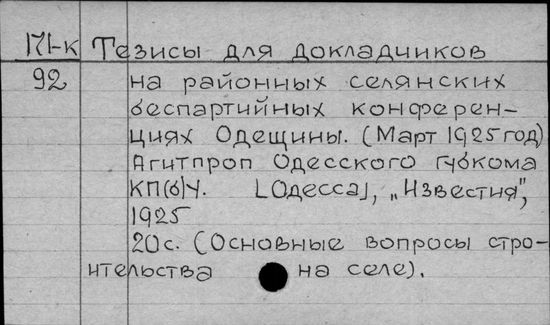 171-к Тезисы для докладчиков
92 на районных селянских
беспартийных конферен-
циях Одещины. (Март 1925 год)
Агитпроп Одесского губкома
КП(б)У. [Одесса], „Известия",
1925
20с. (Основные вопросы стро-
ительства на селе).